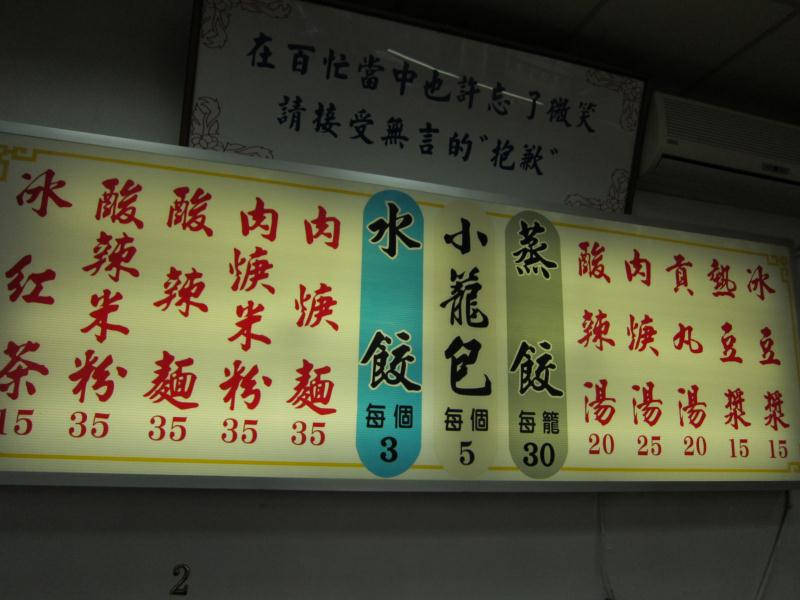 在百忙當中也許忘了微笑
請接受無言的"抱歉"
冰豆漿 15
熱豆漿 15
貢丸湯 20
肉焿湯 25
酸辣湯 20
蒸餃 每籠 30
小籠包 每個 5
水餃 每個 3
肉焿麵 35
肉焿米粉 35
酸辣麵 35
酸辣米粉 35
冰紅茶 15
2